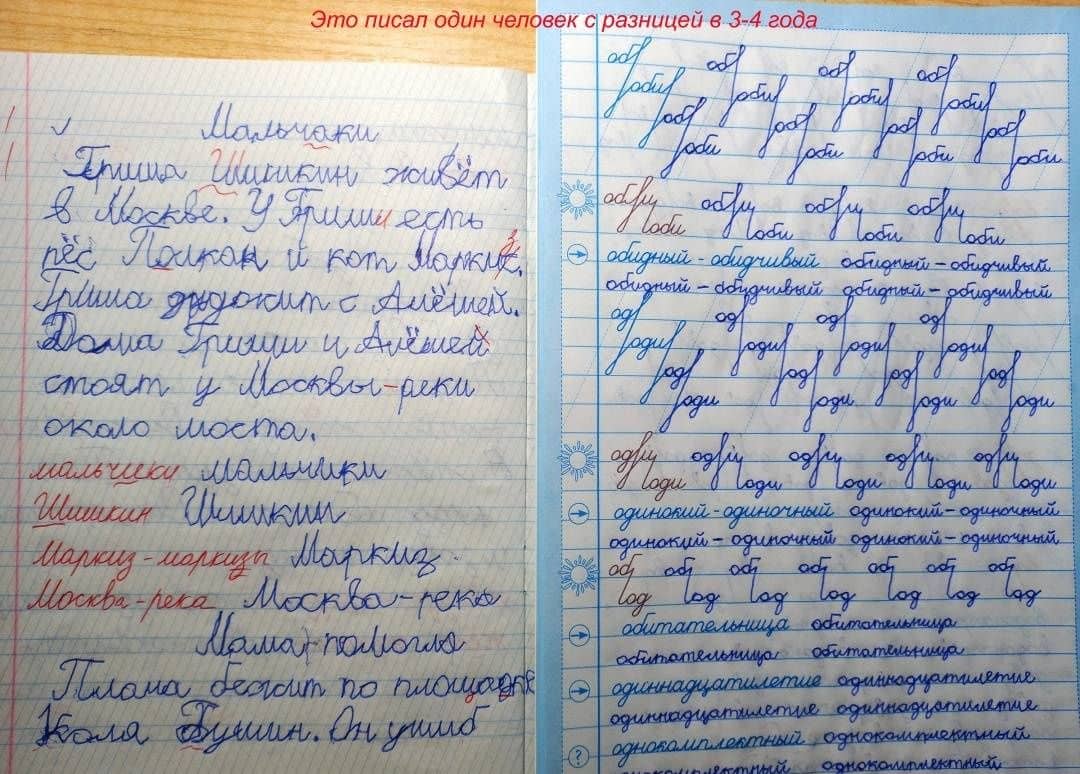 Это писал один человек с разницей в 3-4 года
Мальчаки
Гриша Шишикин живёт
в Москве. У Гриши есть
пёс Полкан и кот Маркиз.
Гриша дружит с Алёшей.
Дома Гриши и Алёшей
стоят у Москвы-реки
около моста.
мальчики мальчики
Шишкин Шишкин
Маркиз-маркизы Маркиз.
Москва-река Москва-река
Мама помогла
по площадке
Коля Он ушиб
об об об об
оби оби оби оби
об об об об
оби оби оби оби
оби оби оби оби
обидный-обидчивый обидный-обидчивый
обидный-обидчивый обидный-обидчивый
од од од од
оди оди оди оди
од од од од
оди оди оди оди
оди оди оди оди оди
одинокий-одиночный одинокий-одиночный
одинокий-одиночный одинокий-одиночный
об об об об об об об
од од од од од од од
обитательница обитательница
обитательница обитательница
одиннадцатилетие одиннадцатилетие
одиннадцатилетие одиннадцатилетие
однокомплектный однокомплектный
однокомплектный однокомплектный